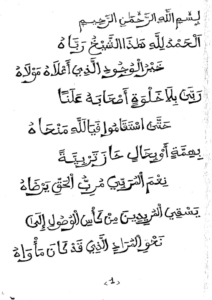 بسم الله الرحمن الرحيم
الحمد لله هذا الشيخ رباه
خير الوجود الذي أعلاه مولاه
ربى بلا خلوة أصحابه علنا
حتى استقاموا فيالله منحاه
بهمة أو بحال حاز تربية
نعم المرقي مرب الحق يرضاه
يسقي المريدين من كأس الوصول إلى
نحو المراد الذي قد كان مأواه
1